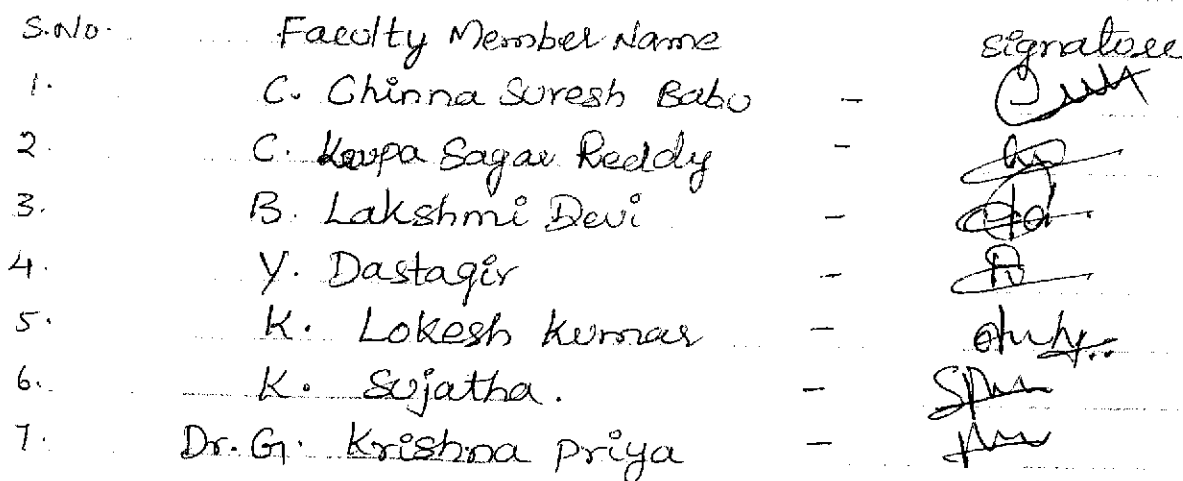 S.No. Faculty Member Name Signature
1. C. Chinna Suresh Babu -
2. C. Krupa Sagar Reddy -
3. B. Lakshmi Devi -
4. Y. Dastagir -
5. K. Lokesh Kumar -
6. K. Sujatha. -
7. Dr. G. Krishna Priya -